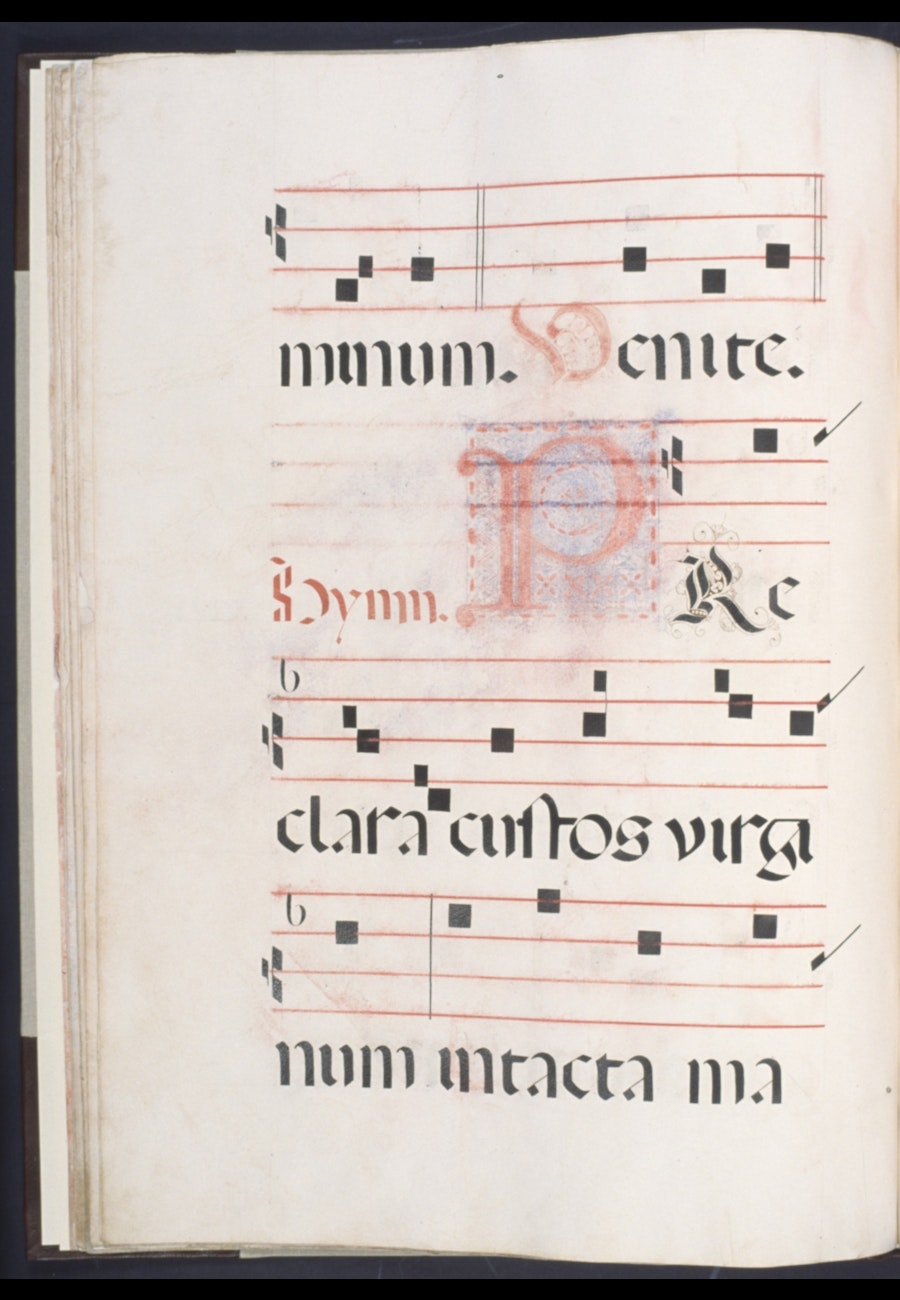 minum. Venite.
Hymn. PRe
clara custos virgi
num intacta ma